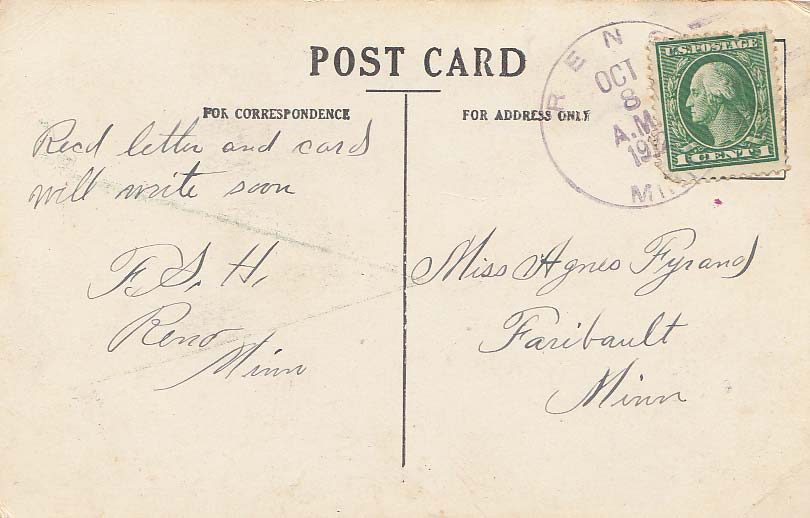 POST CARD
FOR CORRESPONDENCE
FOR ADDRESS ONLY
Recd letter and card
will write soon
F. S. H.
Reno
Minn
Miss Agnes Fyrand
Faribault
Minn
RENO
OCT
8
A.M.
U.S. POSTAGE
1 CENT 1